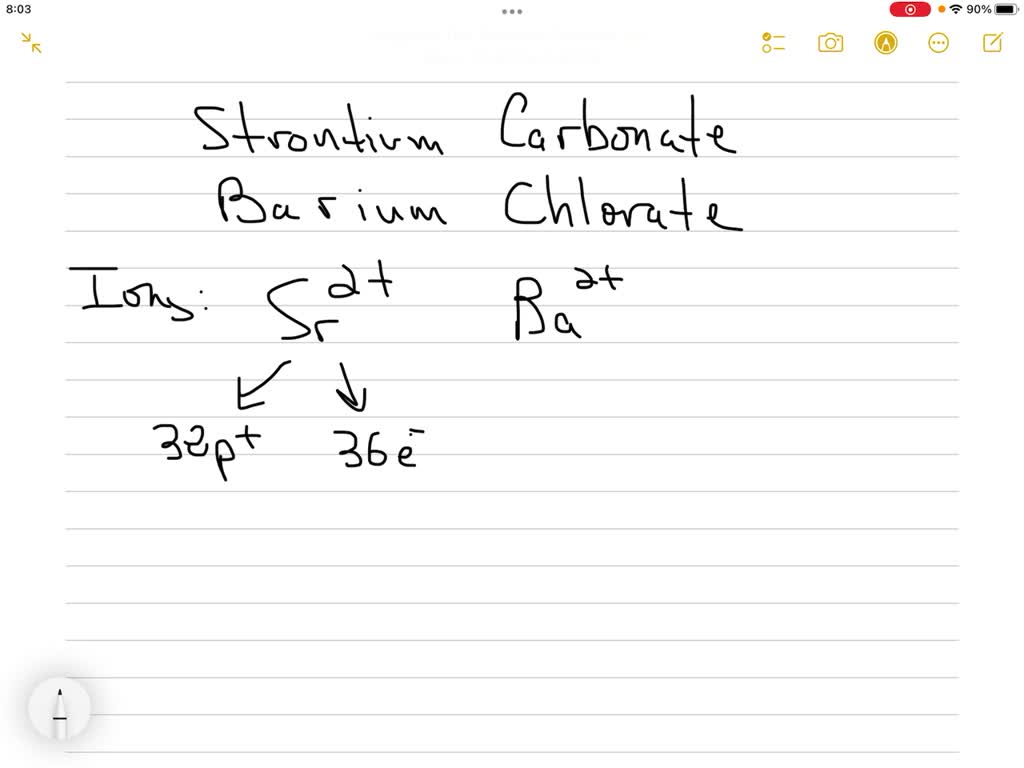 8:03
90%
Strontium Carbonate
Barium Chlorate
Ions: Sr²⁺ Ba²⁺
38p⁺ 36e⁻